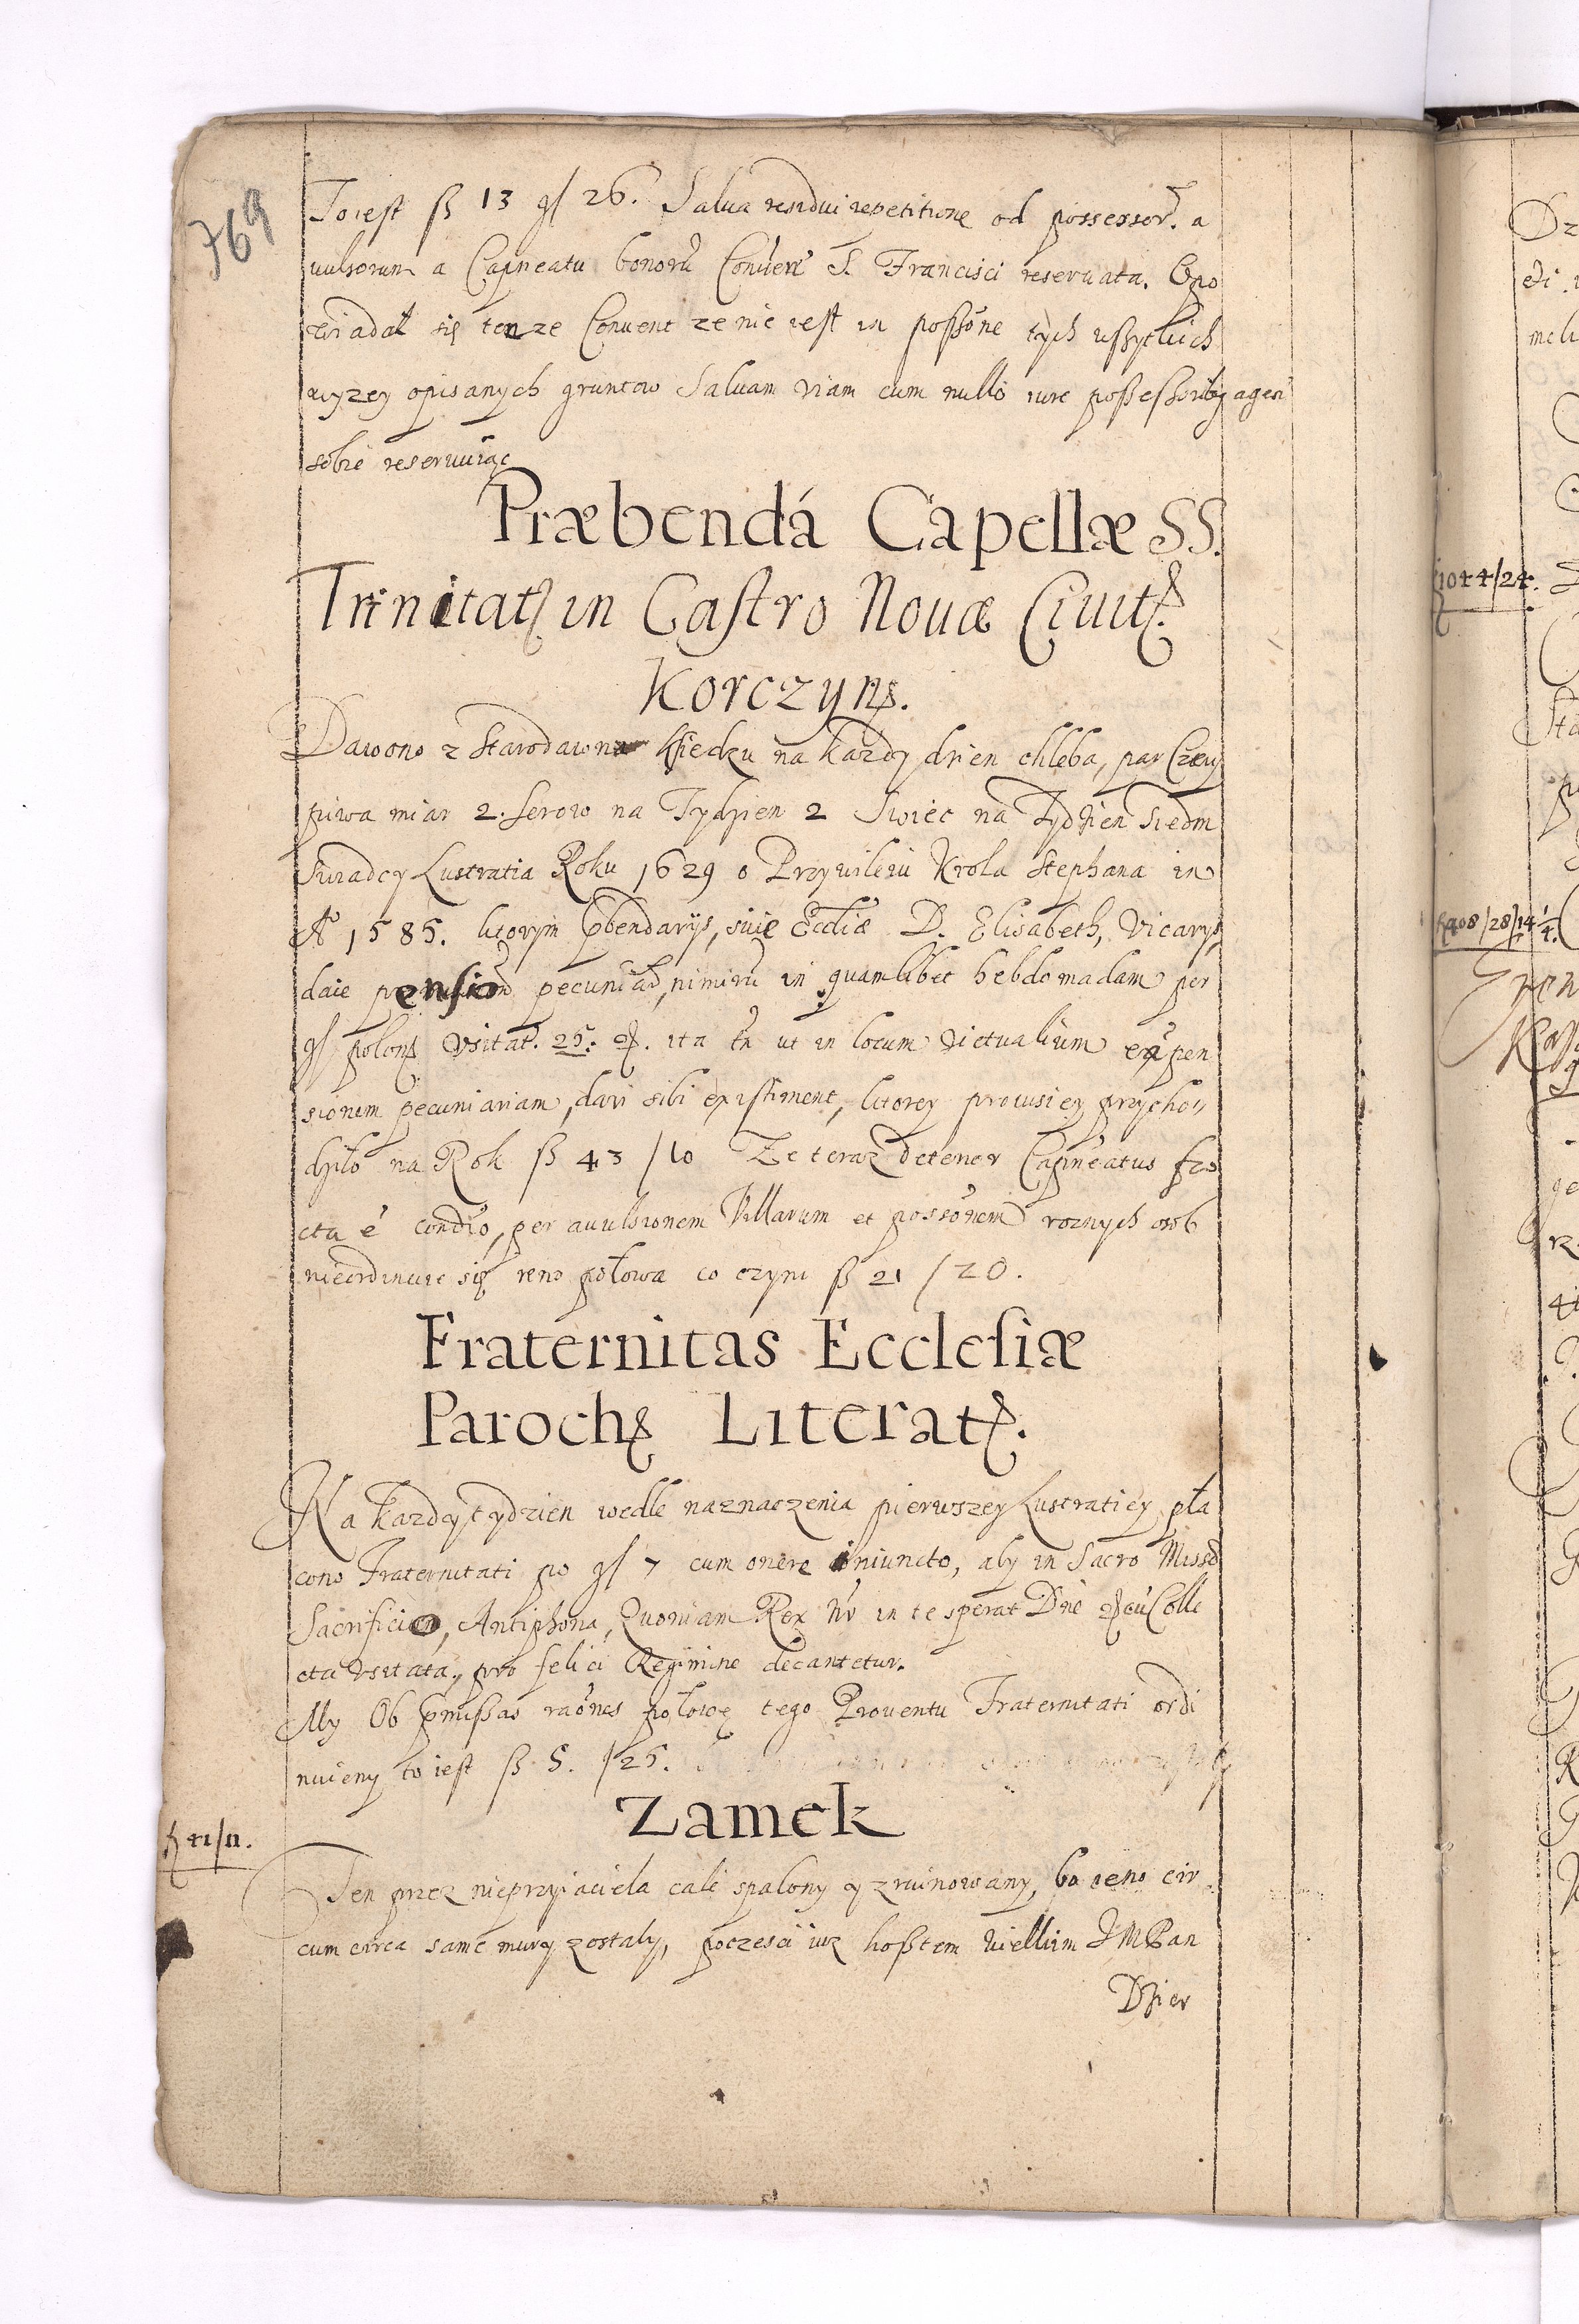 769
To iest ß 13 gſ 26. Salua residui repetitione od possessor. a
uulsorum a Capneatu bonorũ Conuen S. Francisci reseruata. Opo
wiadał się tenze Conuent ze nie iest in poßone tych wßytkich
wyzey opisanych gruntow Saluam viam cum nullo iure poßeßoribq agen
sobie reseruuiąc
Præbendá Capellæ SS.
Trinitat in Castro Nouæ Ciuit.
Korczyn.
Dawono z Starodawna Xiedzu na kazdy dzien chleba, par Czery
piwa miar 2. serow na Tydzien 2 Swiec na Tydzien siedm
Swiadcy Lustratia Roku 1629 o Przywileiu Krola Stephana in
Aº 1585. ktorym pbendarys, siue Eccliæ D. Elisabeth, Vicarys,
daie pensio pecuniar, nimirũ in quamlibet hebdomadam per
gſ polon vsitat. 25. ita tñ ut in locum victualium eam pen
sionem pecuniariam, dari sibi existiment, ktorey prowisiey przycho„
dziło na Rok ß 43 / 10 Ze teraz detener Capneatus fra
cta e condio, per auulsionem Villarum et possonem roznych osob
nieordinuie się ieno połowa co czyni ß 21 / 20.
Fraternitas Ecclesiæ
Paroch Literat.
Na kazdy tydzien wedle naznaczenia pierwszey Lustratiey pła
cono Fraternitati po gſ 7 cum onere iniuncto, aby in Sacro Missæ
Sacrificio, Antiphona, Quoniam Rex nr in te sperat Dne cũ Colle
cta vsitata, pro felici Regimine decantetur.
My Ob pmißas raones połowę tego Prouentu Fraternitati ordi
nuiemy to iest ß 5. / 25.
Zamek
41/11.
Ten przez nieprzyiaciela cale spalony y zruinowany, bo ieno cir
cum circa same mury zostały, poczesci iuz hostem JM Pan
Dzier